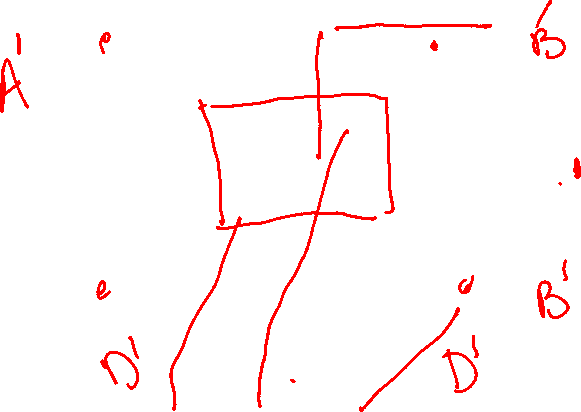 A' B'
B'
D' D'